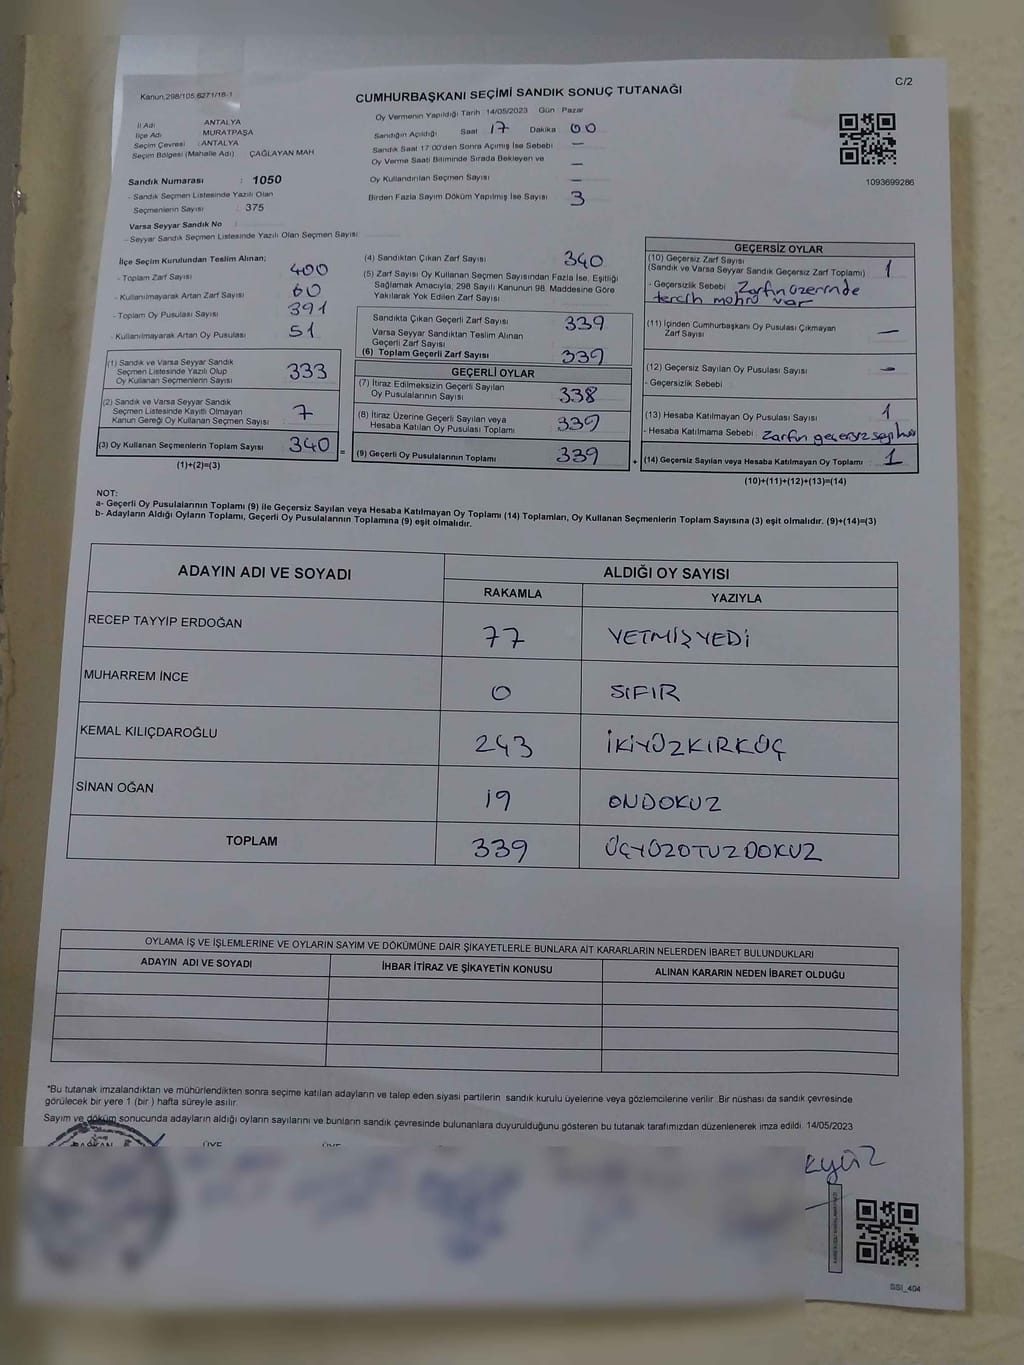 Kanun,298/105,6271/18-1
C/2
CUMHURBAŞKANI SEÇİMİ SANDIK SONUÇ TUTANAĞI
Oy Vermenin Yapıldığı Tarih 14/05/2023 Gün Pazar
İl Adı ANTALYA
İlçe Adı MURATPAŞA
Seçim Çevresi : ANTALYA
Seçim Bölgesi (Mahalle Adı) ÇAĞLAYAN MAH
Sandığın Açıldığı Saat 17 Dakika 00
Sandık Saat 17:00'den Sonra Açımış İse Sebebi —
Oy Verme Saati Bitiminde Sırada Bekleyen ve
Oy Kullandırılan Seçmen Sayısı —
Birden Fazla Sayım Döküm Yapılmış İse Sayısı 3
1093699286
Sandık Numarası : 1050
- Sandık Seçmen Listesinde Yazılı Olan
Seçmenlerin Sayısı : 375
Varsa Seyyar Sandık No
- Seyyar Sandık Seçmen Listesinde Yazılı Olan Seçmen Sayısı
İlçe Seçim Kurulundan Teslim Alınan;
- Toplam Zarf Sayısı 400
- Kullanılmayarak Artan Zarf Sayısı 60
- Toplam Oy Pusulası Sayısı 391
- Kullanılmayarak Artan Oy Pusulası 51
(1) Sandık ve Varsa Seyyar Sandık
Seçmen Listesinde Yazılı Olup
Oy Kullanan Seçmenlerin Sayısı 333
(2) Sandık ve Varsa Seyyar Sandık
Seçmen Listesinde Kayıtlı Olmayan
Kanun Gereği Oy Kullanan Seçmen Sayısı 7
(3) Oy Kullanan Seçmenlerin Toplam Sayısı 340
(1)+(2)=(3)
(4) Sandıktan Çıkan Zarf Sayısı 340
(5) Zarf Sayısı Oy Kullanan Seçmen Sayısından Fazla İse, Eşitliği
Sağlamak Amacıyla, 298 Sayılı Kanunun 98. Maddesine Göre
Yakılarak Yok Edilen Zarf Sayısı
Sandıkta Çıkan Geçerli Zarf Sayısı 339
Varsa Seyyar Sandıktan Teslim Alınan
Geçerli Zarf Sayısı
(6) Toplam Geçerli Zarf Sayısı 339
GEÇERLİ OYLAR
(7) İtiraz Edilmeksizin Geçerli Sayılan
Oy Pusulalarının Sayısı 338
(8) İtiraz Üzerine Geçerli Sayılan veya
Hesaba Katılan Oy Pusulası Toplamı 339
= (9) Geçerli Oy Pusulalarının Toplamı 339 +
GEÇERSİZ OYLAR
(10) Geçersiz Zarf Sayısı
(Sandık ve Varsa Seyyar Sandık Geçersiz Zarf Toplamı) 1
- Geçersizlik Sebebi Zarfın üzerinde
tercih mohru var
(11) İçinden Cumhurbaşkanı Oy Pusulası Çıkmayan
Zarf Sayısı —
(12) Geçersiz Sayılan Oy Pusulası Sayısı —
- Geçersizlik Sebebi
(13) Hesaba Katılmayan Oy Pusulası Sayısı 1
- Hesaba Katılmama Sebebi Zarfın geçersiz
(14) Geçersiz Sayılan veya Hesaba Katılmayan Oy Toplamı 1
(10)+(11)+(12)+(13)=(14)
NOT:
a- Geçerli Oy Pusulalarının Toplamı (9) ile Geçersiz Sayılan veya Hesaba Katılmayan Oy Toplamı (14) Toplamları, Oy Kullanan Seçmenlerin Toplam Sayısına (3) eşit olmalıdır. (9)+(14)=(3)
b- Adayların Aldığı Oyların Toplamı, Geçerli Oy Pusulalarının Toplamına (9) eşit olmalıdır.
ADAYIN ADI VE SOYADI ALDIĞI OY SAYISI
RAKAMLA YAZIYLA
RECEP TAYYİP ERDOĞAN 77 YETMİŞYEDİ
MUHARREM İNCE 0 SIFIR
KEMAL KILIÇDAROĞLU 243 İKİYÜZKIRKÜÇ
SİNAN OĞAN 19 ONDOKUZ
TOPLAM 339 ÜÇYÜZOTUZDOKUZ
OYLAMA İŞ VE İŞLEMLERİNE VE OYLARIN SAYIM VE DÖKÜMÜNE DAİR ŞİKAYETLERLE BUNLARA AİT KARARLARIN NELERDEN İBARET BULUNDUKLARI
ADAYIN ADI VE SOYADI İHBAR İTİRAZ VE ŞİKAYETİN KONUSU ALINAN KARARIN NEDEN İBARET OLDUĞU
*Bu tutanak imzalandıktan ve mühürlendikten sonra seçime katılan adayların ve talep eden siyasi partilerin sandık kurulu üyelerine veya gözlemcilerine verilir .Bir nüshası da sandık çevresinde
görülecek bir yere 1 (bir ) hafta süreyle asılır.
Sayım ve döküm sonucunda adayların aldığı oyların sayılarını ve bunların sandık çevresinde bulunanlara duyurulduğunu gösteren bu tutanak tarafımızdan düzenlenerek imza edildi. 14/05/2023
BAŞKAN ÜYE ÜYE
SSI_404